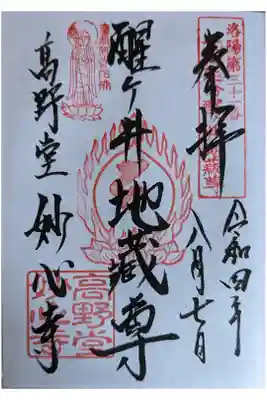 洛陽第
奉拝
令和四年
八月七日
醒ヶ井地蔵尊
高野堂妙心寺
高野堂
妙心寺